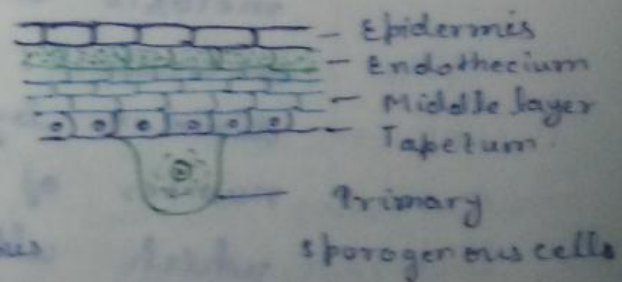 Epidermis
Endothecium
Middle layer
Tapetum
Primary
sporogenous cells